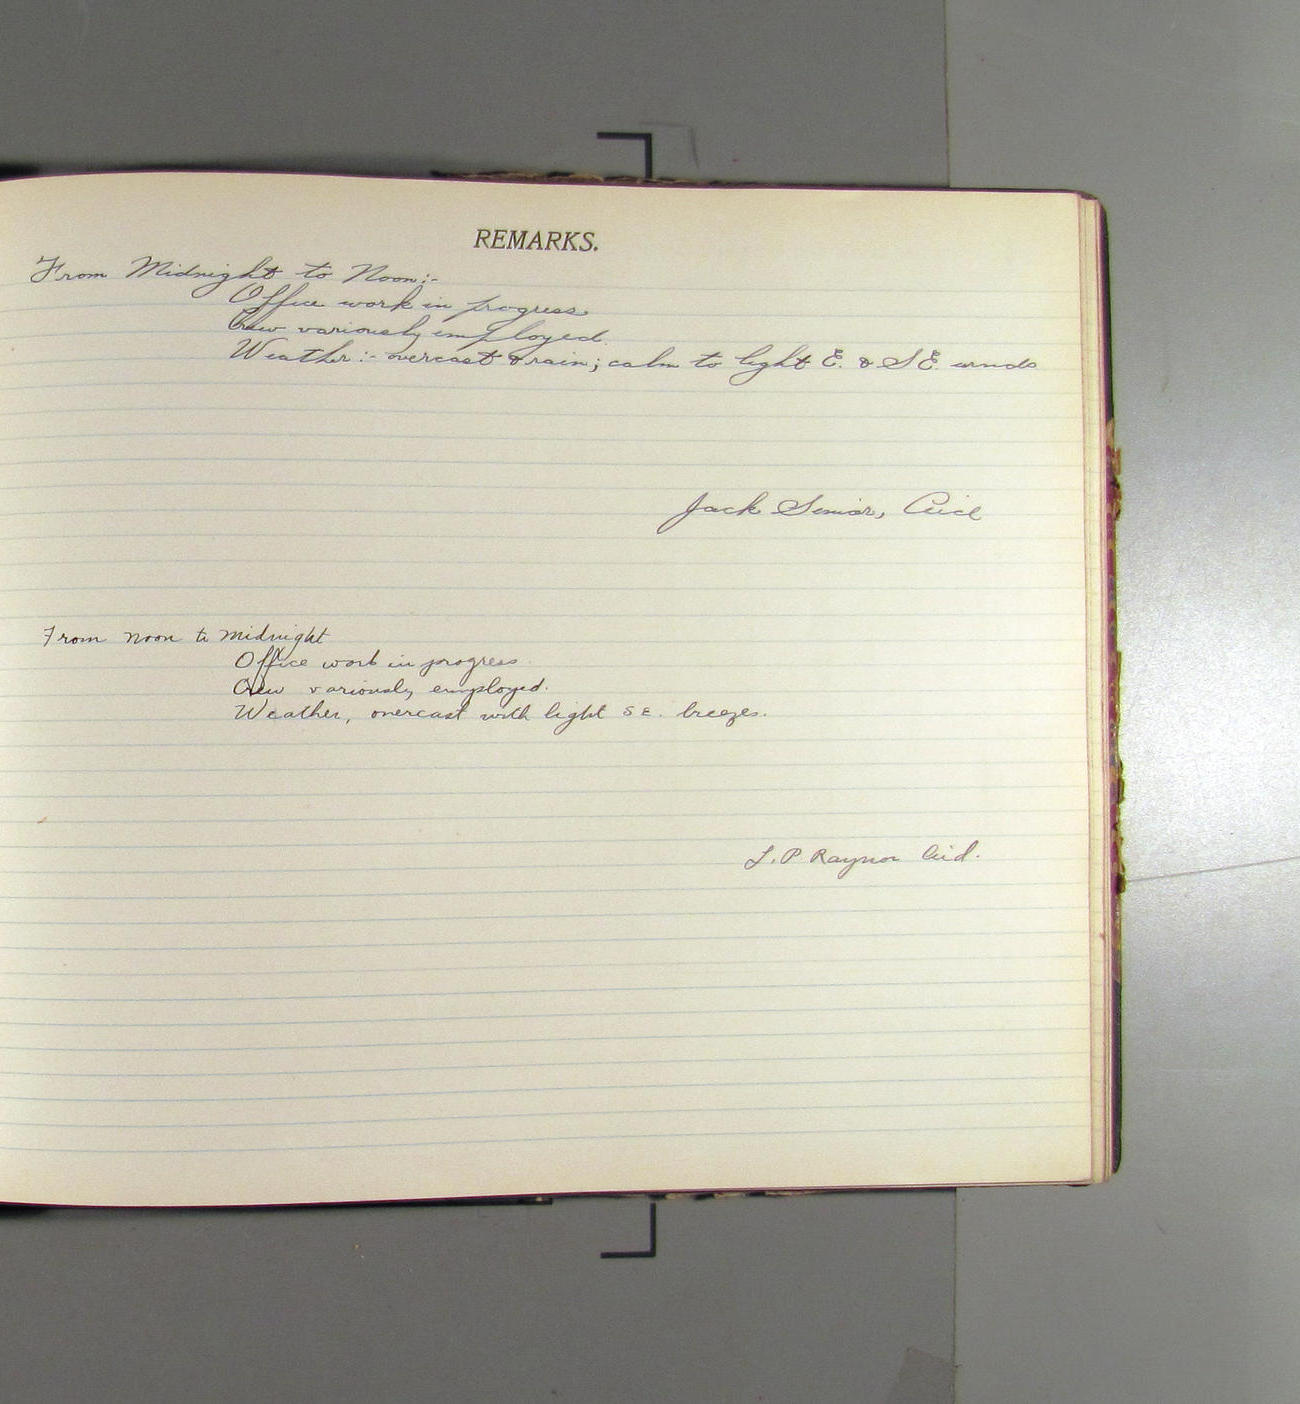 REMARKS.
From Midnight to Noon:-
Office work in progress
Crew variously employed.
Weather:- overcast & rain; calm to light E. & SE. winds
Jack Senior, Aid
From noon to midnight
Office work in progress.
Crew variously employed.
Weather, overcast with light SE. breezes.
L. P Raynor Aid.